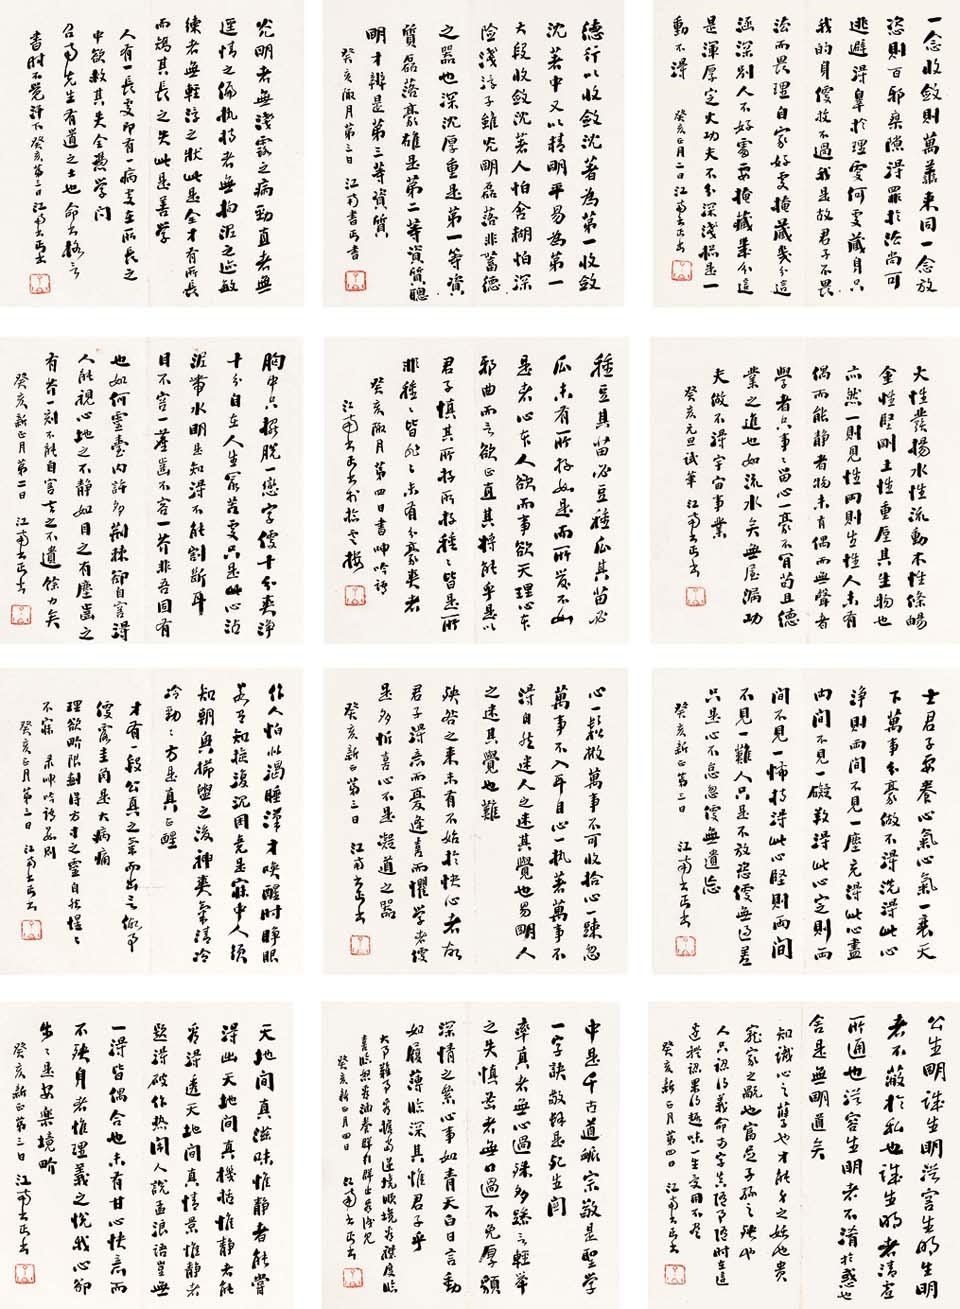 一念收斂則萬善來同一念放
恣則百邪乘隙得罪於法尚可
逃避得辠於理更何處藏身只
我的身便放不過我是故君子不畏
法而畏理自家好處掩藏幾分這
涵深別人不好處要掩藏幾分這
是渾厚定火功夫不分深淺總是一
動不得
癸亥正月二日江南書丐書
德行以收斂沈著為第一收斂
沈著中又以精明平易為第一
大段收斂沈著人怕含糊怕深
險淺浮子雖光明磊落非蓄德
之器也深沈厚重是第一等資
質磊落豪雄是第二等資質聰
明才辨是第三等資質
癸亥微月第三日 江南書丐書
光明者無淺露之病勁直者無
逕情之偏執持者無拘泥之迹敏
練者無輕浮之狀此是全才有所長
而矯其長之失此是善學
人有一長處即有一病處在所長之
中欲救其失全憑學問
召南先生有道之士也命書格言
書時不覺汗下癸亥第三日江南書丐書
火性發揚水性流動木性條暢
金性堅剛土性重厚其生物也
亦然一則見性兩則生性人未有
偶而能靜者物未有偶而無聲者
學者只事事留心一豪不肯苟且德
業之進也如流水矣無屋漏功
夫做不得宇宙事業
癸亥元旦試筆 江南書丐書
種豆其苗必豆種瓜其苗必
瓜未有所存如是而所發不如
是者心本人欲而事欲天理心本
邪曲而言欲正直其將能乎是以
君子慎其所存所存種種皆是所
非種種皆非種種未有分豪爽者
癸亥微月第四日書呻吟語
江南書丐書於
胸中只擺脫一戀字便十分爽淨
十分自在人生最苦處只是此心沾
泥帶水明是知得不能割斷耳
目不容一塵齒不容一芥非吾固有
也如何靈臺內許多荊棘卻自容得
人能視心地之不靜如目之有塵齒之
有芥一刻不能自容去之不遺餘力矣
癸亥新正月第二日 江南書丐書
士君子要養心氣心氣一衰天
下萬事分豪做不得洗得此心
淨則兩間不見一塵充得此心盡
兩間不見一礙養得此心定則兩
間不見一怖持得此心堅則兩間
不見一難人只是不放恣便無過差
只是心不怠忽便無遺忘
癸亥新正第三日 江南書丐書
心一鬆散萬事不可收拾心一疎忽
萬事不入耳目心一執著萬事不
得自然迷人之迷其覺也易明人
之迷其覺也難
殃咎之來未有不始於快心者故
君子得意而憂逢喜而懼學者便
是多忻喜心不是凝道之器
癸亥新正第三日 江南書丐書
作人怕似渴睡漢才喚醒時睜眼
若有知旋復沉困竟是寐中人須
知朝興櫛盥之後神爽氣清冷
冷勁勁方是真正醒
才有一段公直之氣而出言做事
便露圭角是大病痛
理欲略限封得方寸之靈自能惺惺
不寐 录呻吟語
癸亥正月第三日 江南書丐書
公生明誠生明從容生明生明
者不蔽於私也誠生明者清虛
所通也從容生明者不淆於惑也
舍是無明道矣
知識心之孽也才能身之妖也貴
寵家之禍也富足子孫之殃也
人只認得義命兩字真隨事隨時在這
邊體認果得趣味一生受用不盡
癸亥新正月第四日 江南書丐書
中是千古道脈宗敬是聖學
一字訣敬肆是死生關
率真者無心過殊多躁言輕舉
之失慎密者無口過不免厚貌
深情之累心事如青天白日言動
如履薄臨深其惟君子乎
大事難事看擔當逆境順境看襟度臨
喜臨怒看涵養群行群止看識見
癸亥新正月四日 江南書丐書
天地間真滋味惟靜者能嘗
得出天地間真機括惟靜者能
看得透天地間真情景惟靜者
題得破作熱鬧人說孟浪語豈無
一得皆偶合也未有甘心快意而
不殃身者惟理義之悅我心卻
步步是安樂境
癸亥新正第三日 江南書丐書